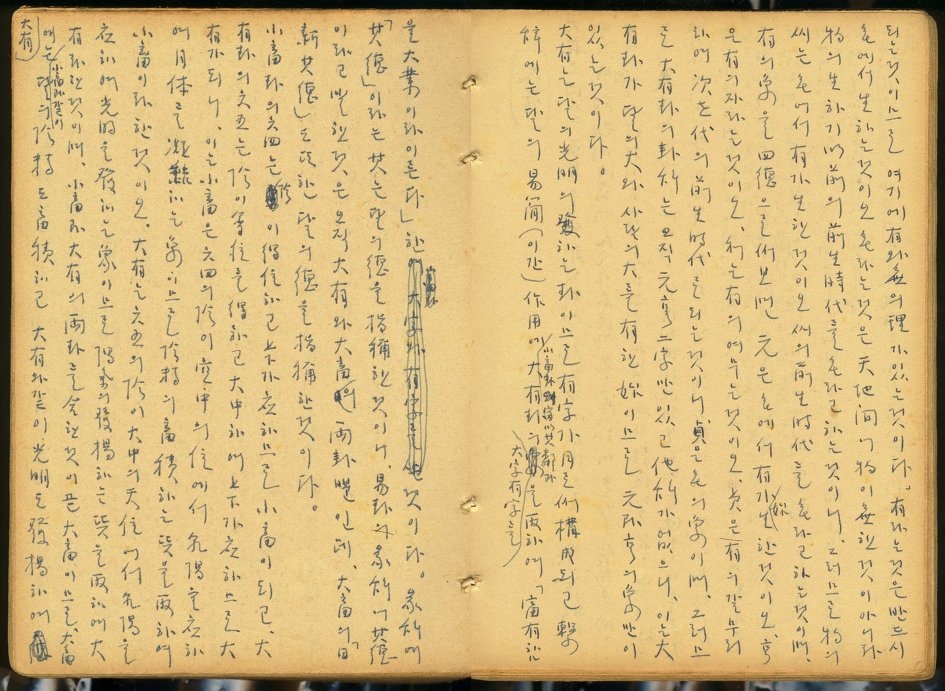 되는것이므로 여기에有와無의理가있는것이다. 有라는것은반드시
無에서生하는것이오 無라는것은天地間에物이無한것이아니라
物의生하기以前의前生時代를無라고하는것이니, 그러므로物의
씨는無에서有가生한것이오 씨의前生時代를無라고하는것이며,
有의象을四德으로써보면 元은無에서有가始生한것이오, 亨
은有의자라는것이오, 利는有의여무는것이오, 貞은有의갈무리
하여次世代의前生時代로되는것이니 貞은無의象이며, 그러므
로大有卦의卦辭는오직元亨二字만있고他辭가없으니, 이는大
有卦가달의大와사람의大를有한始이므로 元과亨의象만이
있는것이다.
大有는달의光明의發하는卦이므로有字가月로써構成되고 繫
辭에는달의易簡(이간)作用에大有卦의 을取하여「富有하
大字有字를
을大業이라이른다」한 것이다. 彖辭에
「其德」이라는其는달의德을指稱한것이니, 易卦의彖辭에其德
이라고말한것은오직大有와大畜의兩卦뿐인데, 大畜의「日
新其德」도또한달의德을指稱한것이다.
小畜卦의六四는陰이得位하고上下가應하므로小畜이되고, 大
有卦의六五는陰이尊位를得하고大中하여上下가應하므로大
有가되니, 이는小畜은六四의陰이 中의位에서乾陽을應하
여月体를凝結하는象이므로陰精의畜積하는뜻을取하여
小畜이라한것이오, 大有는六五의陰이大中의天位에서乾陽을
應하여光明을發하는象이므로陽 의發揚하는뜻을取하여大
有라한것이며, 小畜과大有의兩卦를合한것이곧大畜이므로,大畜
에는小畜과같이달의陰精도畜積하고 大有와같이光明도發揚하여
大有